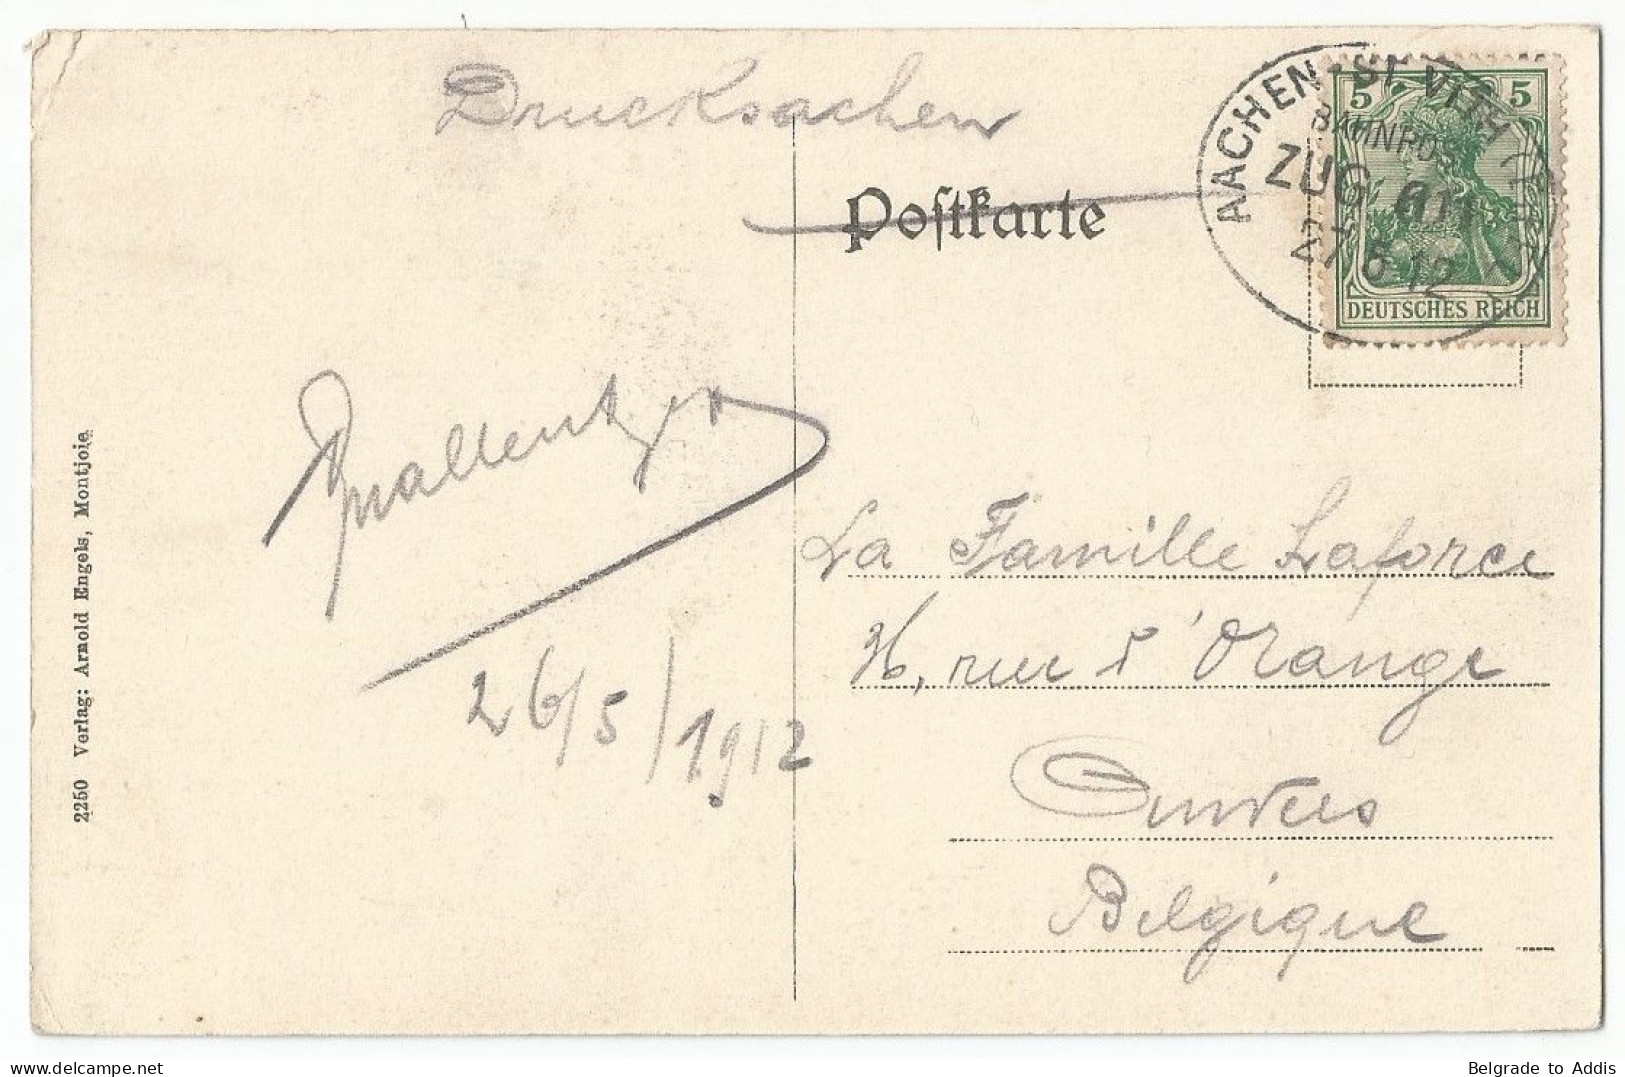 Drucksachen
Postkarte
AACHEN - ST VITH
BAHNPOST
ZUG
27 5 12
5 5
DEUTSCHES REICH
26/5/1912
La Famille Laforce
rue d'Orange
Anvers
Belgique
2250 Verlag: Arnold Engels, Montjoie
Belgrade to Addis